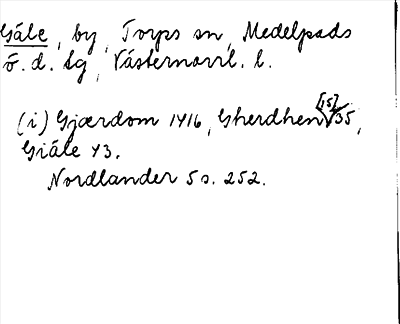 Gåle, by, Torps sn, Medelpads
ö. d. tg, Västernorrl. l.
(i) Gjærdom 1416, Gherdhem [15]35,
Giåle 43.
Nordlander 5 s. 252.